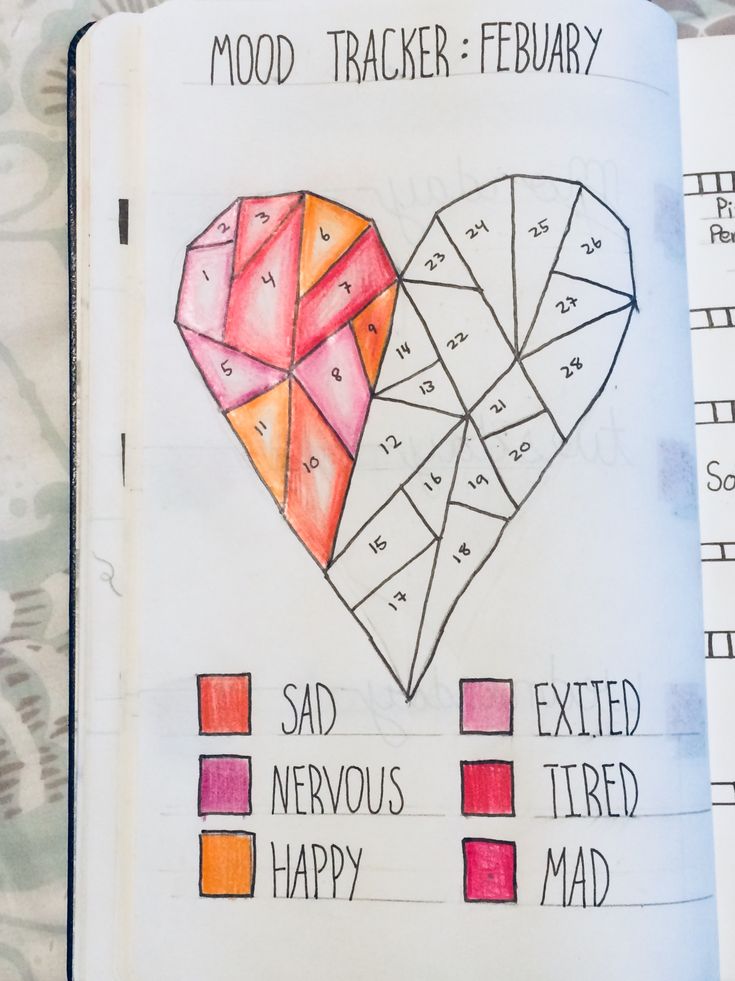 MOOD TRACKER: FEBUARY
1
2
3
4
5
6
7
8
9
10
11
12
13
14
15
16
17
18
19
20
21
22
23
24
25
26
27
28
SAD
EXITED
NERVOUS
TIRED
HAPPY
MAD